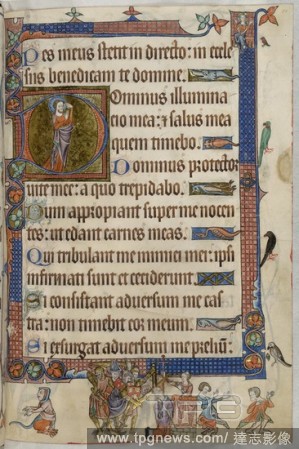 Pes meus stetit in directo: in eccle
siis benedicam te domine.
Dominus illumina
cio mea: & salus mea
quem timebo.
Dominus protector
uite mee: a quo trepidabo.
Dum appropiant super me nocen
tes: ut edant carnes meas.
Qui tribulant me inimici mei: ipsi
infirmati sunt et ceciderunt.
Si consistant aduersum me cas
tra: non timebit cor meum.
Si exsurgat aduersum me prelium:
www.tpgnews.com/ 達志影像